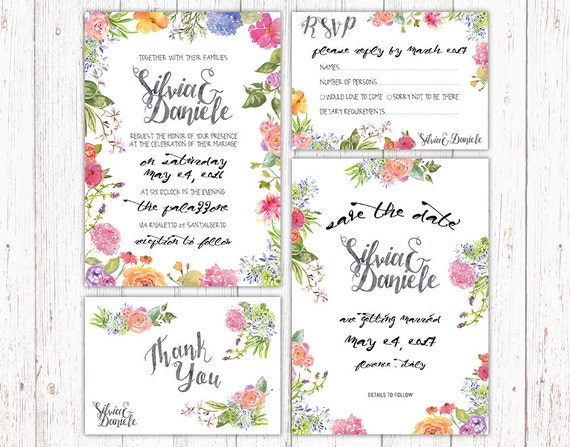 TOGETHER WITH THEIR FAMILIES
Silvia &
Daniele
REQUEST THE HONOR OF YOUR PRESENCE
AT THE CELEBRATION OF THEIR MARRIAGE
on saturday
May 24, 2017
AT SIX O'CLOCK IN THE EVENING
the palazzone
VIA RIVALETTO 21 SANT'ALBERTO
reception to follow
RSVP
please reply by march 2017
NAMES
NUMBER OF PERSONS
WOULD LOVE TO COME SORRY NOT TO BE THERE
DIETARY REQUIREMENTS
Silvia & Daniele
save the date
Silvia &
Daniele
are getting married
May 24, 2017
florence, italy
DETAILS TO FOLLOW
Thank
You
Silvia &
Daniele